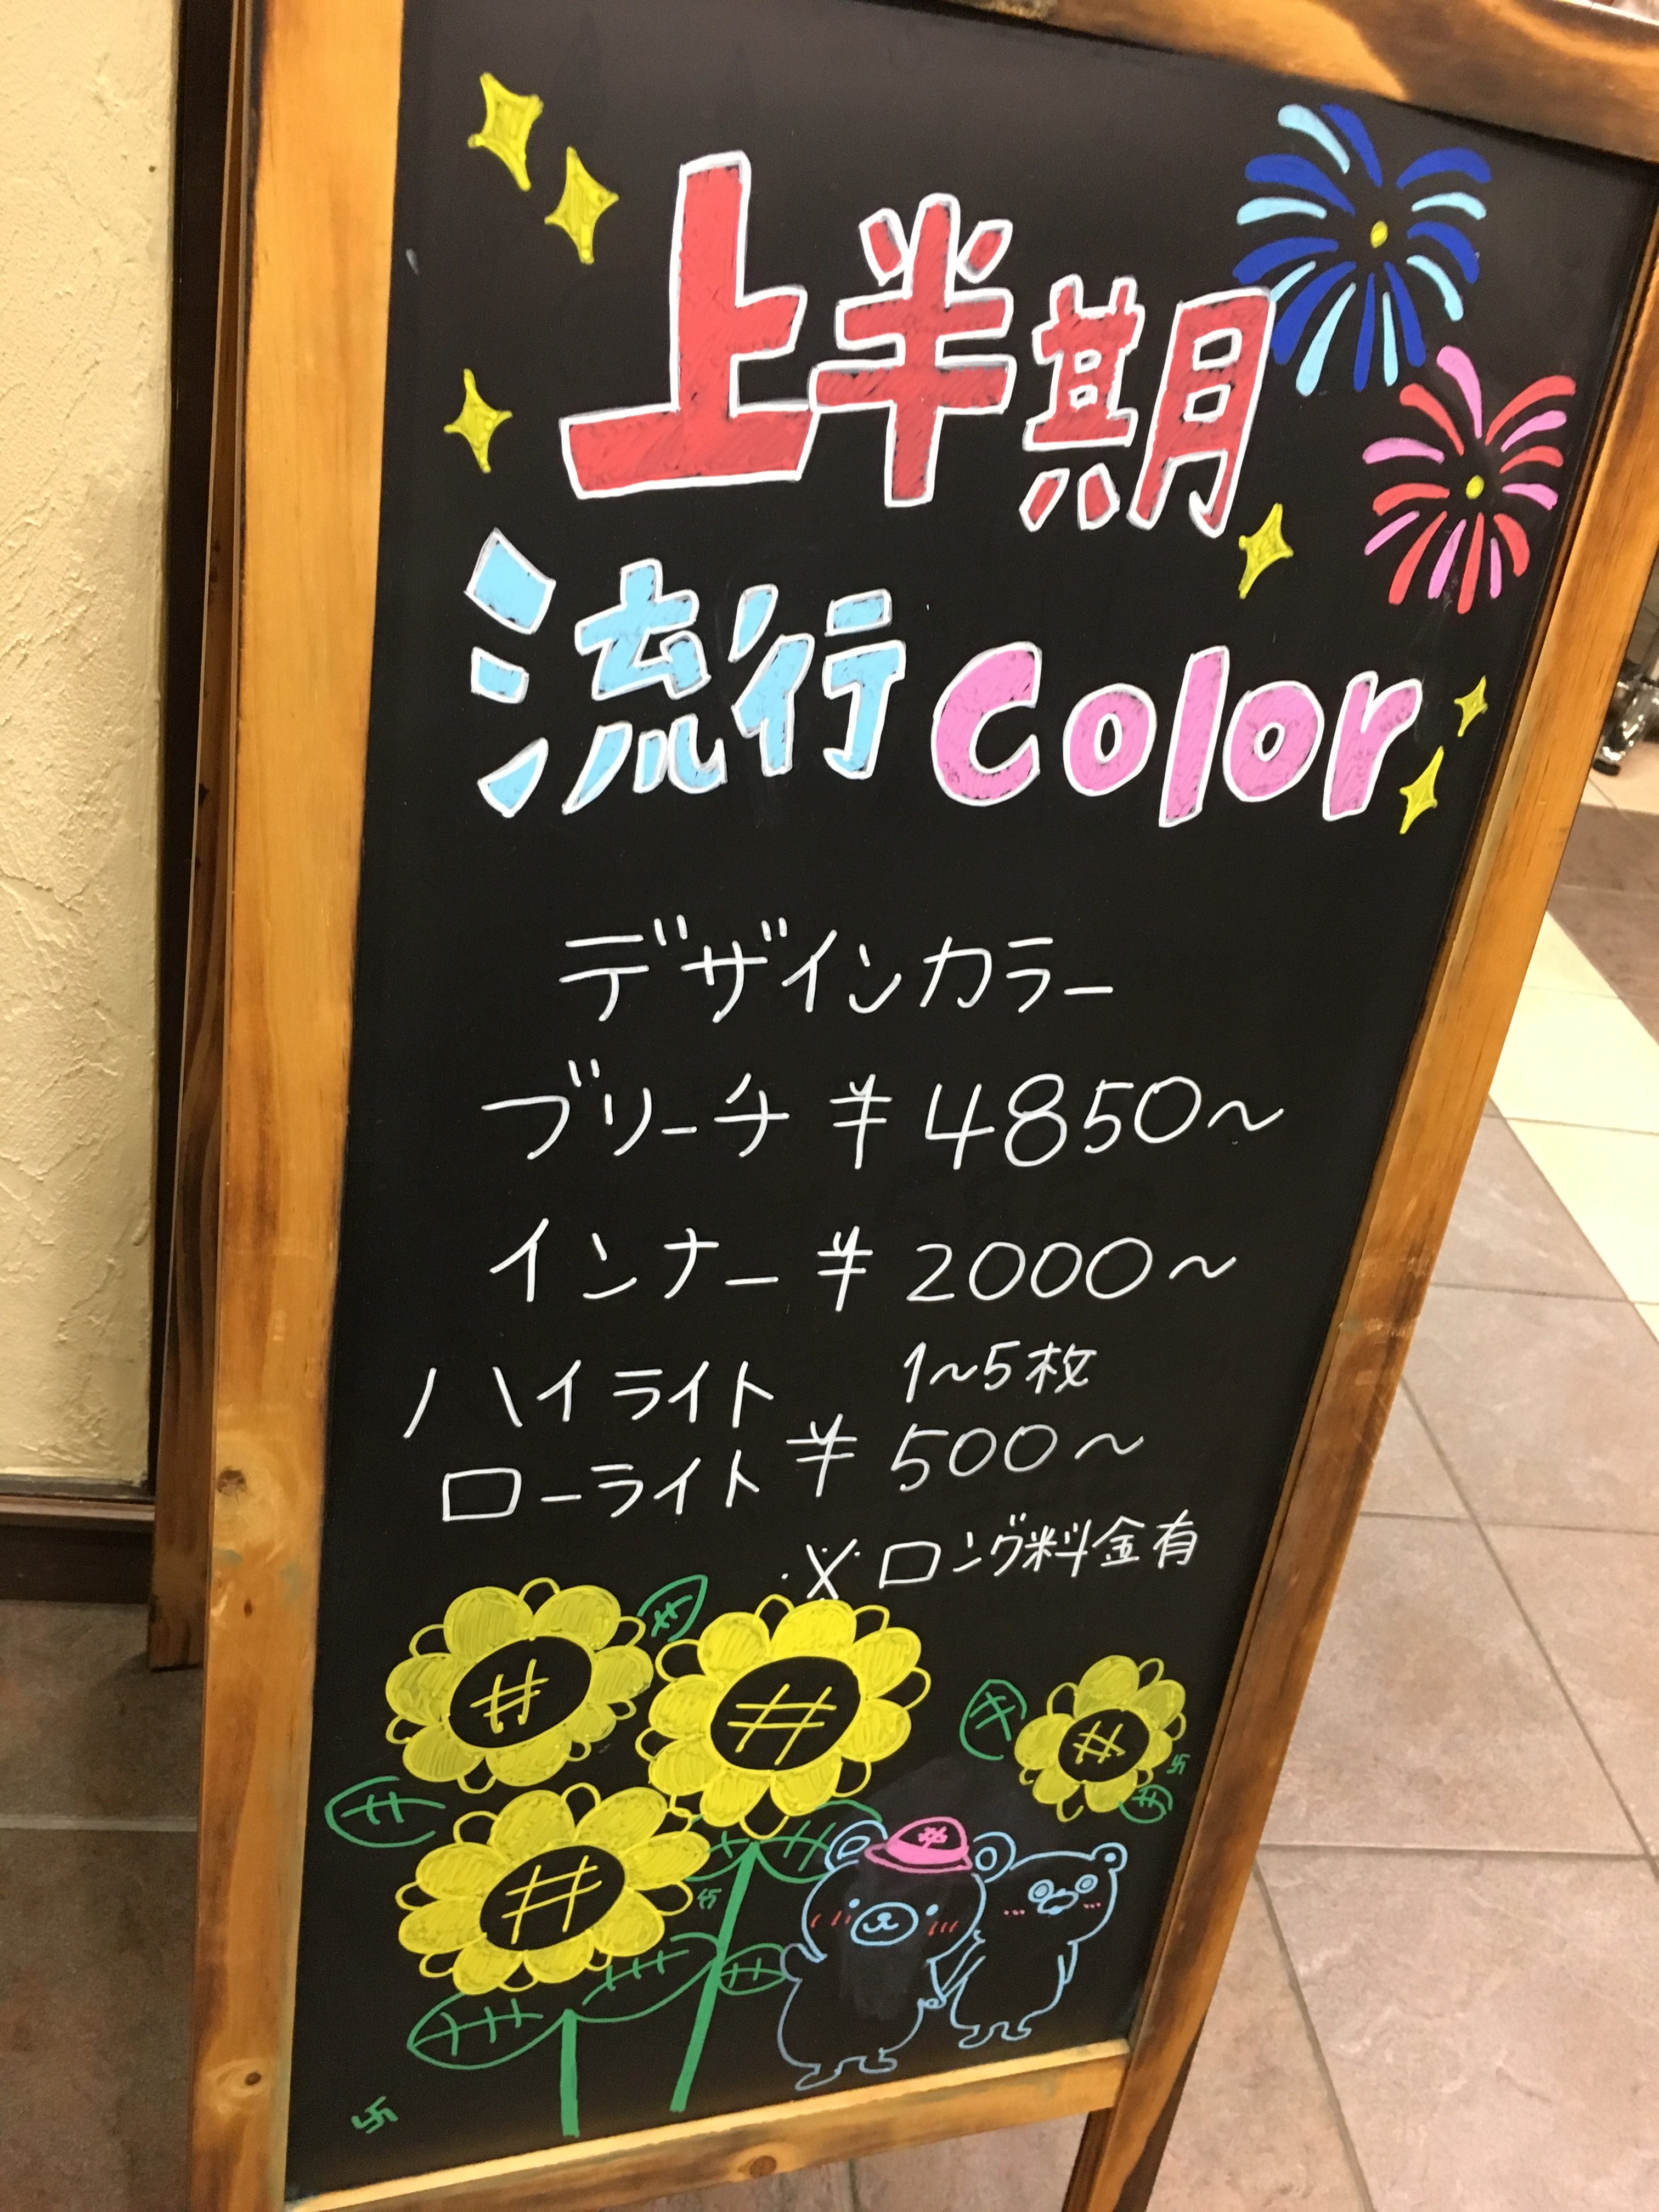 上半期
流行Color
デザインカラー
ブリーチ ¥4850〜
インナー ¥2000〜
ハイライト 1〜5枚
ローライト ¥500〜
※ロング料金有